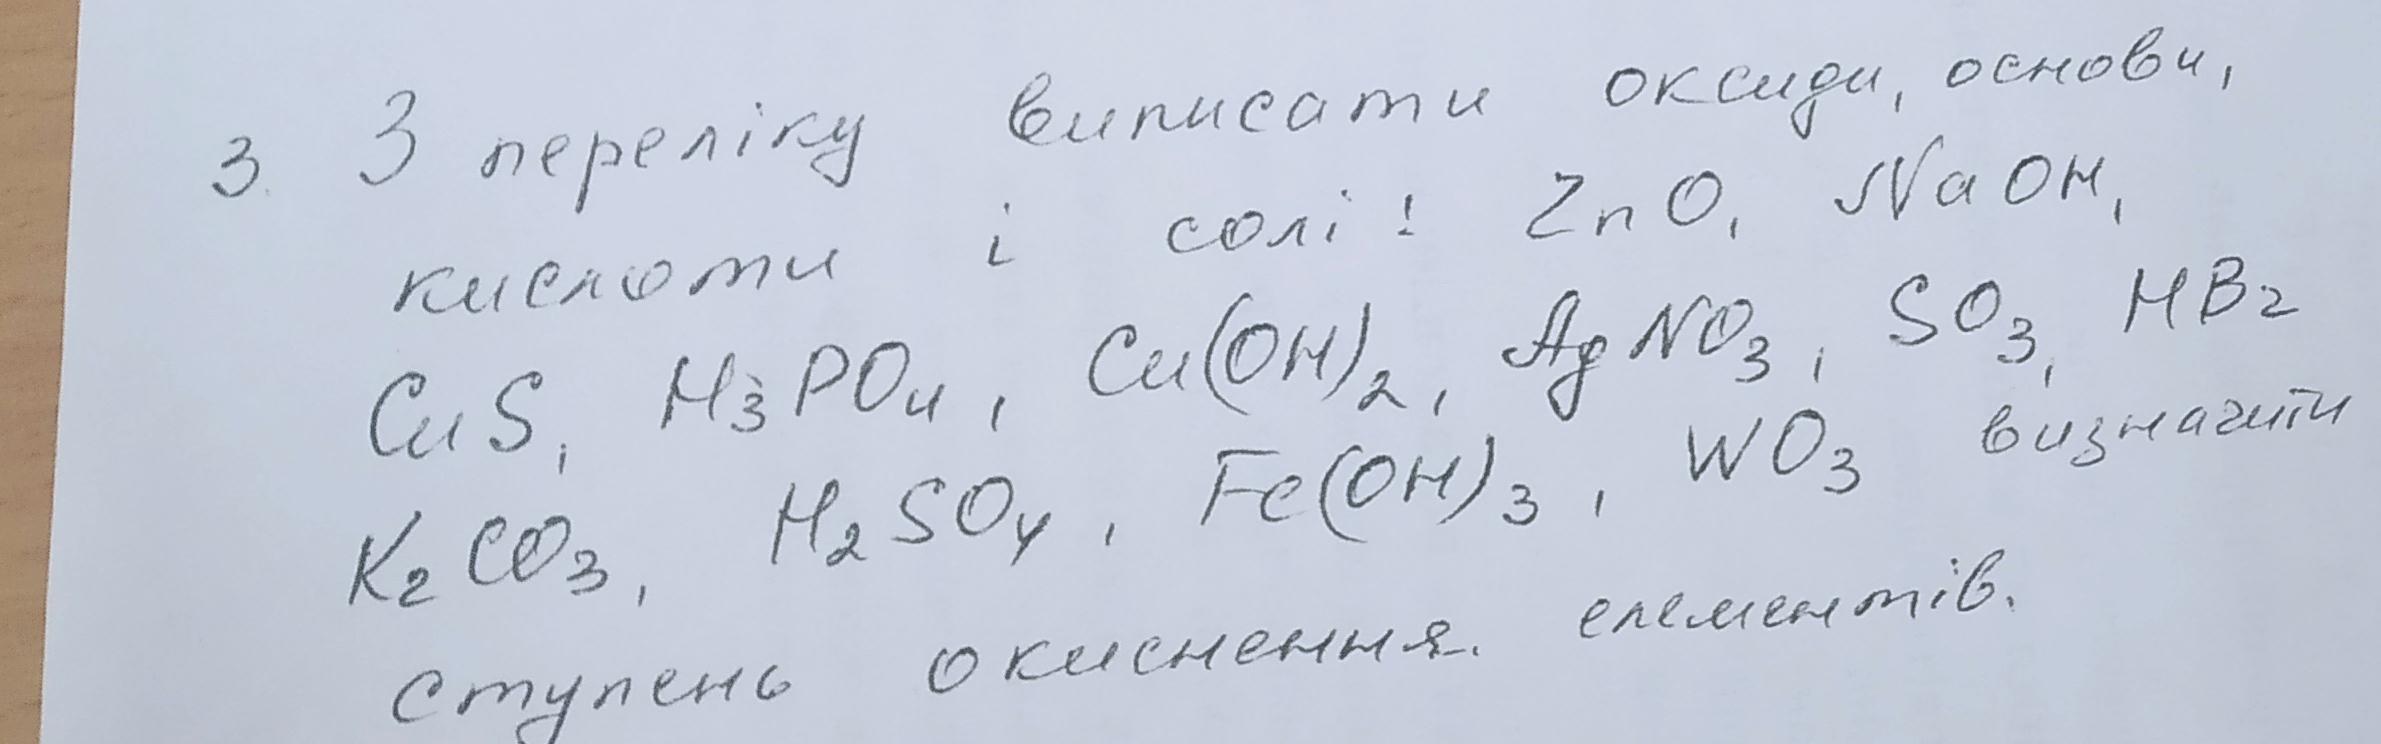 3. З переліку виписати оксиди, основи,
кислоти і солі: ZnO, NaOH,
CuS, H₃PO₄, Cu(OH)₂, AgNO₃, SO₃, HBr
K₂CO₃, H₂SO₄, Fe(OH)₃, WO₃ визначити
ступень окиснення. елементів.